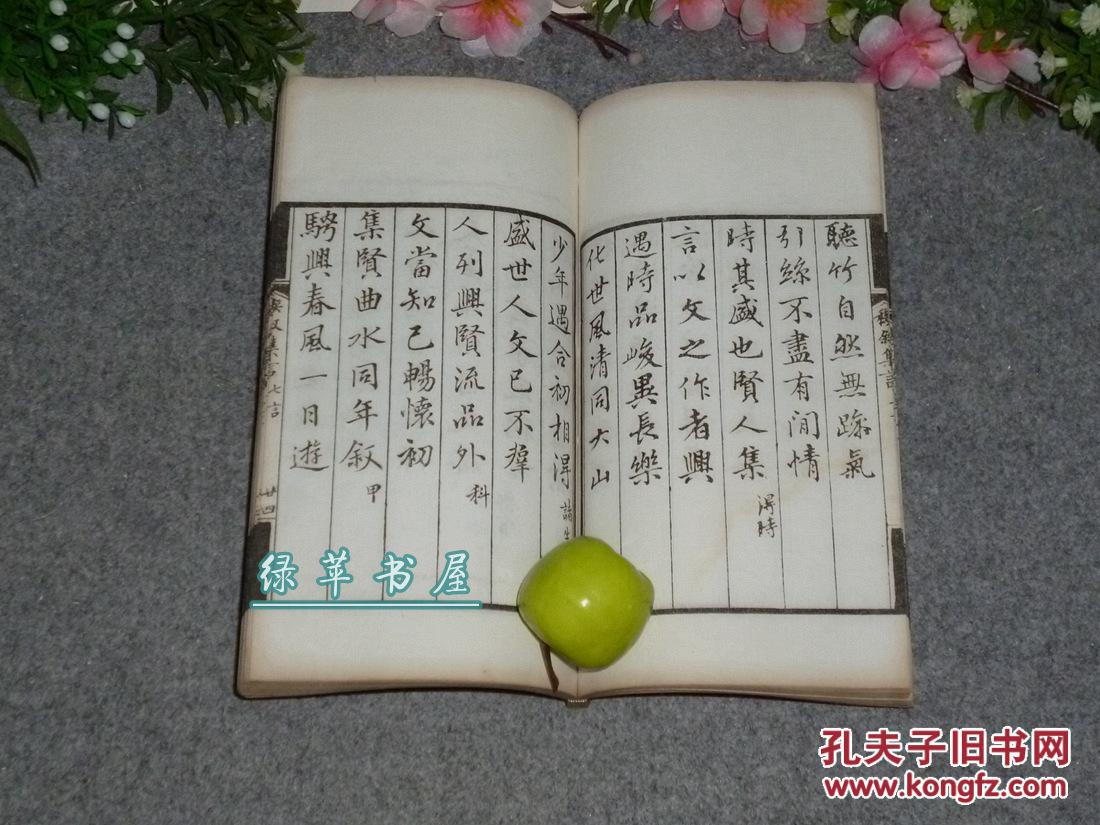 聽竹自然無躁氣
引絲不盡有閒情
時其盛也賢人集
得時
言以文之作者興
遇時品峻異長樂
化世風清同大山
少年遇合初相得
諸生
盛世人文已不群
人列興賢流品外
科
文當知己暢懷初
集賢曲水同年敘
甲
騁興春風一日遊
禊敘集言 七言
廿四
绿苹书屋
孔夫子旧书网
www.kongfz.com